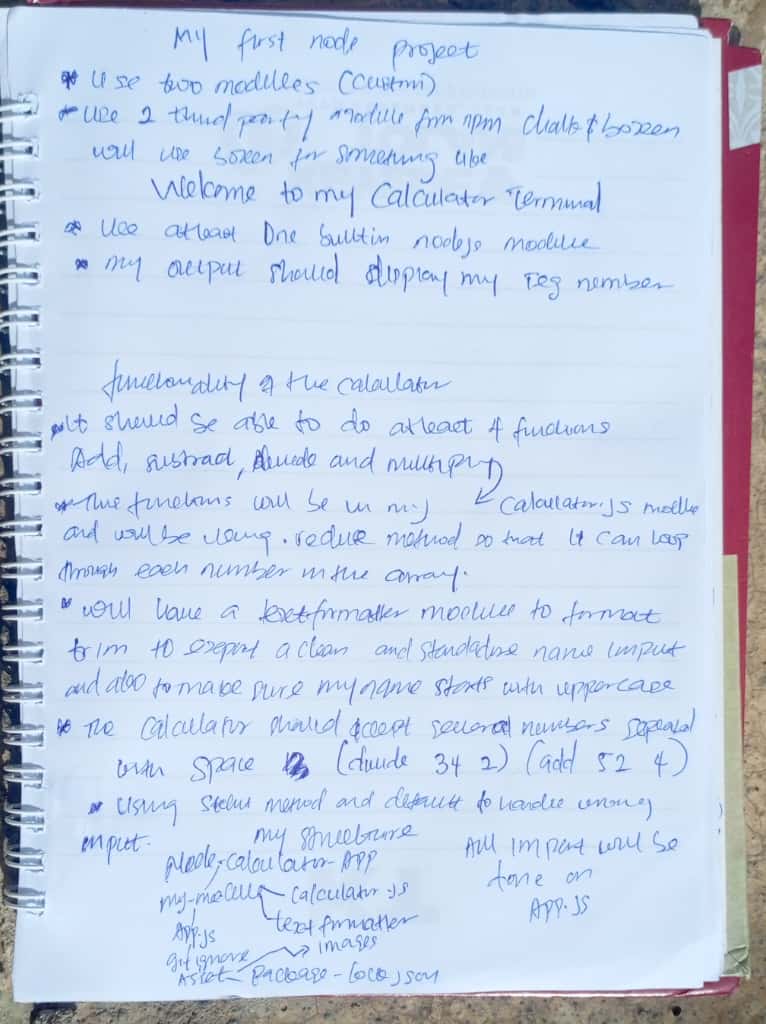 My first node project
* Use two modules (custom)
* Use 2 third party module from npm chalk & boxen
will use boxen for something like
Welcome to my Calculator Terminal
* Use atleast One builtin nodejs module
* my output should display my reg number
functionality of the calculator
* It should be able to do atleast 4 functions
Add, subtract, divide and multiply
* This functions will be in my calculator.js module
and will be using .reduce method so that it can loop
through each number in the array.
* will have a textformatter module to format
trim to export a clean and standadise name imput
and also to make sure my name starts with uppercase
* The calculator should accept several numbers seperated
with space (divide 34 2) (add 52 4)
* Using method and default to handle wrong
input.
my structure
Node-calculator-APP
my-module calculator.js
textformatter
App.js
gitignore images
Asset package-lock.json
All import will be
done on
APP.JS